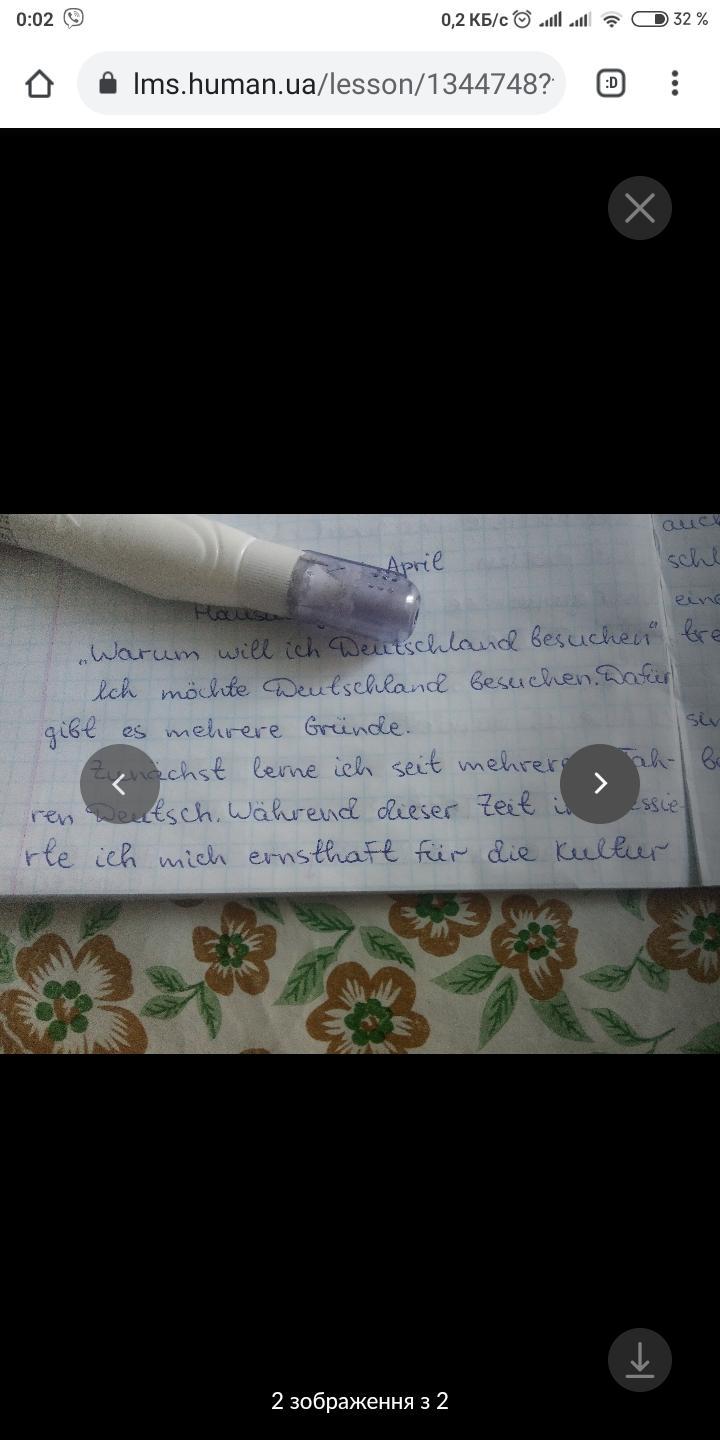 0:02 0,2 КБ/с 32 %
lms.human.ua/lesson/1344748?
:D
April
„Warum will ich Deutschland besuchen“
Ich möchte Deutschland besuchen. Dafür
gibt es mehrere Gründe.
Zunächst lerne ich seit mehrere Jah-
ren Deutsch. Während dieser Zeit
rte ich mich ernsthaft für die Kultur
auch
2 зображення з 2